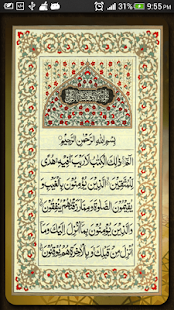 9:55 PM
بِسْمِ اللهِ الرَّحْمٰنِ الرَّحِيْمِ
الٓمّٓ ذٰلِكَ الْكِتٰبُ لَا رَيْبَ فِيْهِ هُدًى
لِّلْمُتَّقِيْنَ الَّذِيْنَ يُؤْمِنُوْنَ بِالْغَيْبِ وَ
يُقِيْمُوْنَ الصَّلٰوةَ وَمِمَّا رَزَقْنٰهُمْ يُنْفِقُوْنَ
وَالَّذِيْنَ يُؤْمِنُوْنَ بِمَا اُنْزِلَ اِلَيْكَ وَمَا
اُنْزِلَ مِنْ قَبْلِكَ وَبِالْاٰخِرَةِ هُمْ يُوْقِنُوْنَ